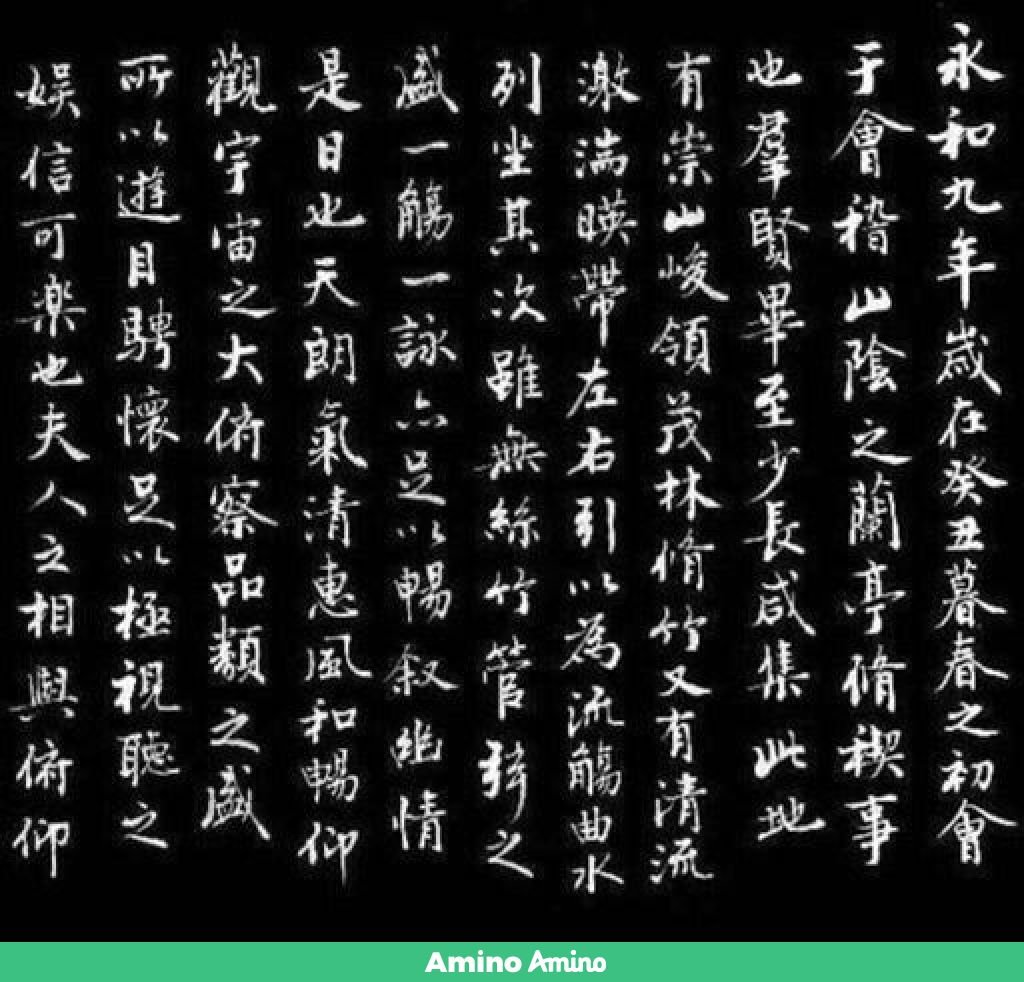 永和九年歲在癸丑暮春之初會
于會稽山陰之蘭亭脩稧事
也羣賢畢至少長咸集此地
有崇山峻領茂林脩竹又有清流
激湍暎帶左右引以為流觴曲水
列坐其次雖無絲竹管弦之
盛一觴一詠亦足以暢叙幽情
是日也天朗氣清惠風和暢仰
觀宇宙之大俯察品類之盛
所以遊目騁懷足以極視聽之
娛信可樂也夫人之相與俯仰
Amino Amino